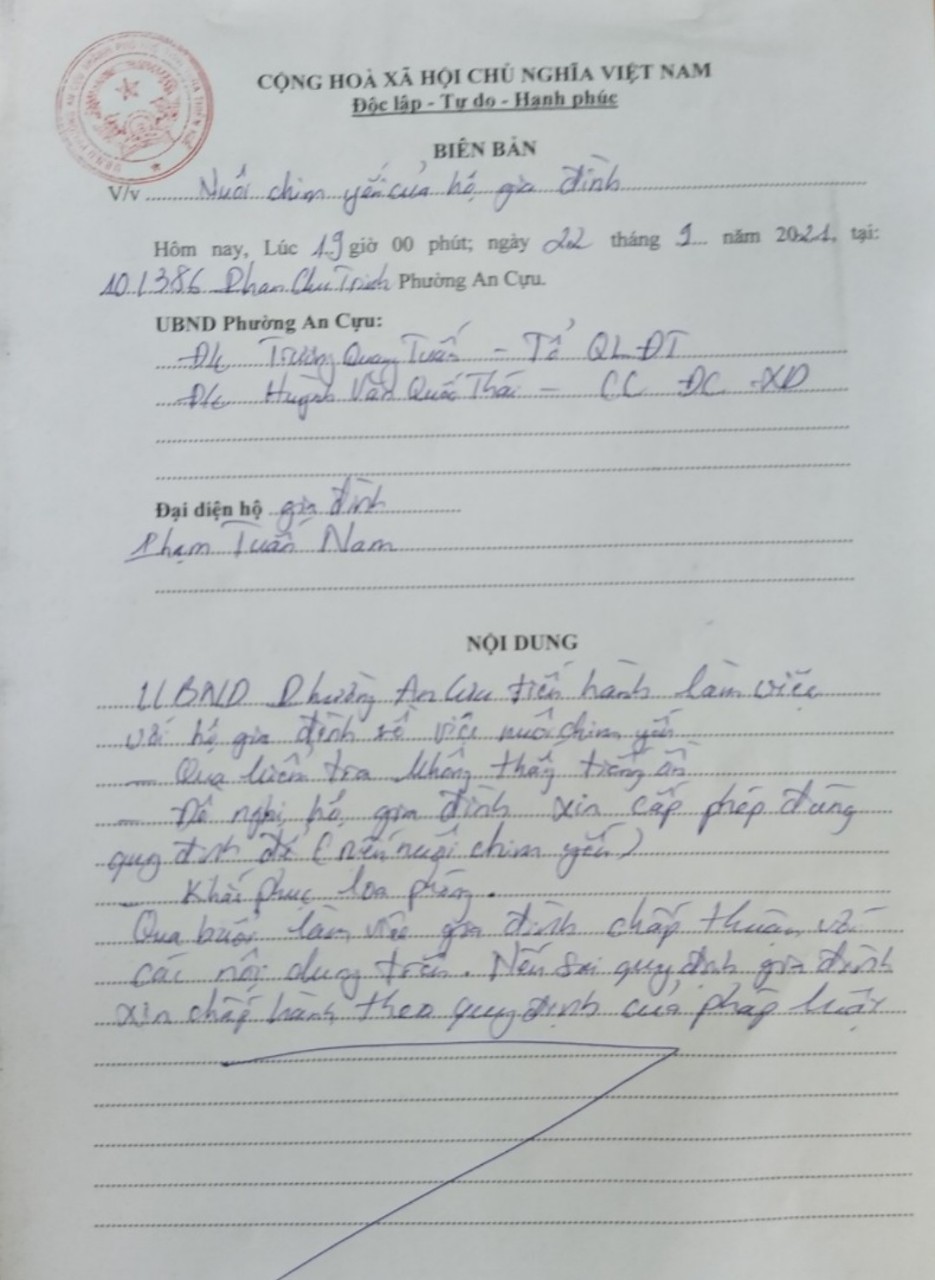 CỘNG HOÀ XÃ HỘI CHỦ NGHĨA VIỆT NAM
Độc lập - Tự do - Hạnh phúc
BIÊN BẢN
V/v Nuôi chim yến của hộ gia đình
Hôm nay, Lúc 19 giờ 00 phút; ngày 22 tháng 9 năm 2021, tại:
10/386 Phan Chu Trinh Phường An Cựu.
UBND Phường An Cựu:
Đ/c Trương Quang Tuấn - Tổ QLĐT
Đ/c Huỳnh Văn Quốc Thái - CC ĐC - XD
Đại diện hộ gia đình
Phạm Tuấn Nam
NỘI DUNG
UBND Phường An Cựu tiến hành làm việc
với hộ gia đình về việc nuôi chim yến
- Qua kiểm tra không thấy tiếng ồn
- Đề nghị hộ gia đình xin cấp phép đúng
quy định để (nếu nuôi chim yến)
- Khắc phục loa phóng.
Qua buổi làm việc gia đình chấp thuận với
các nội dung trên. Nếu sai quy định gia đình
xin chấp hành theo quy định của pháp luật